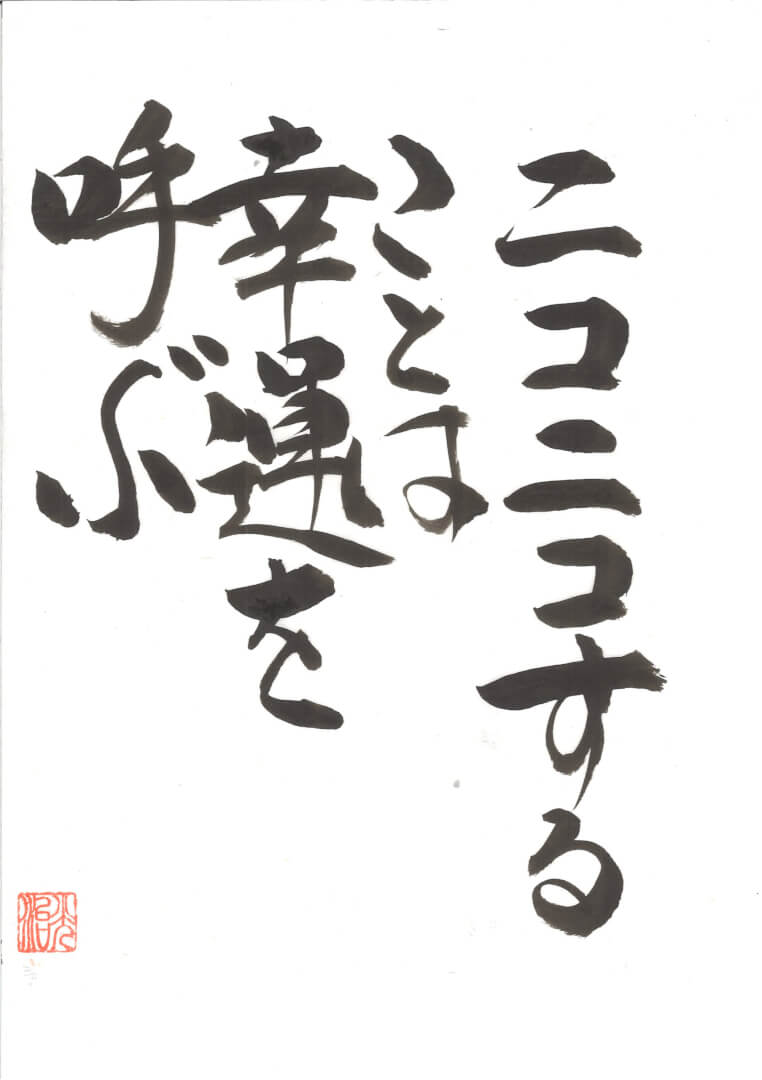 ニコニコする
ことは
幸運を
呼ぶ